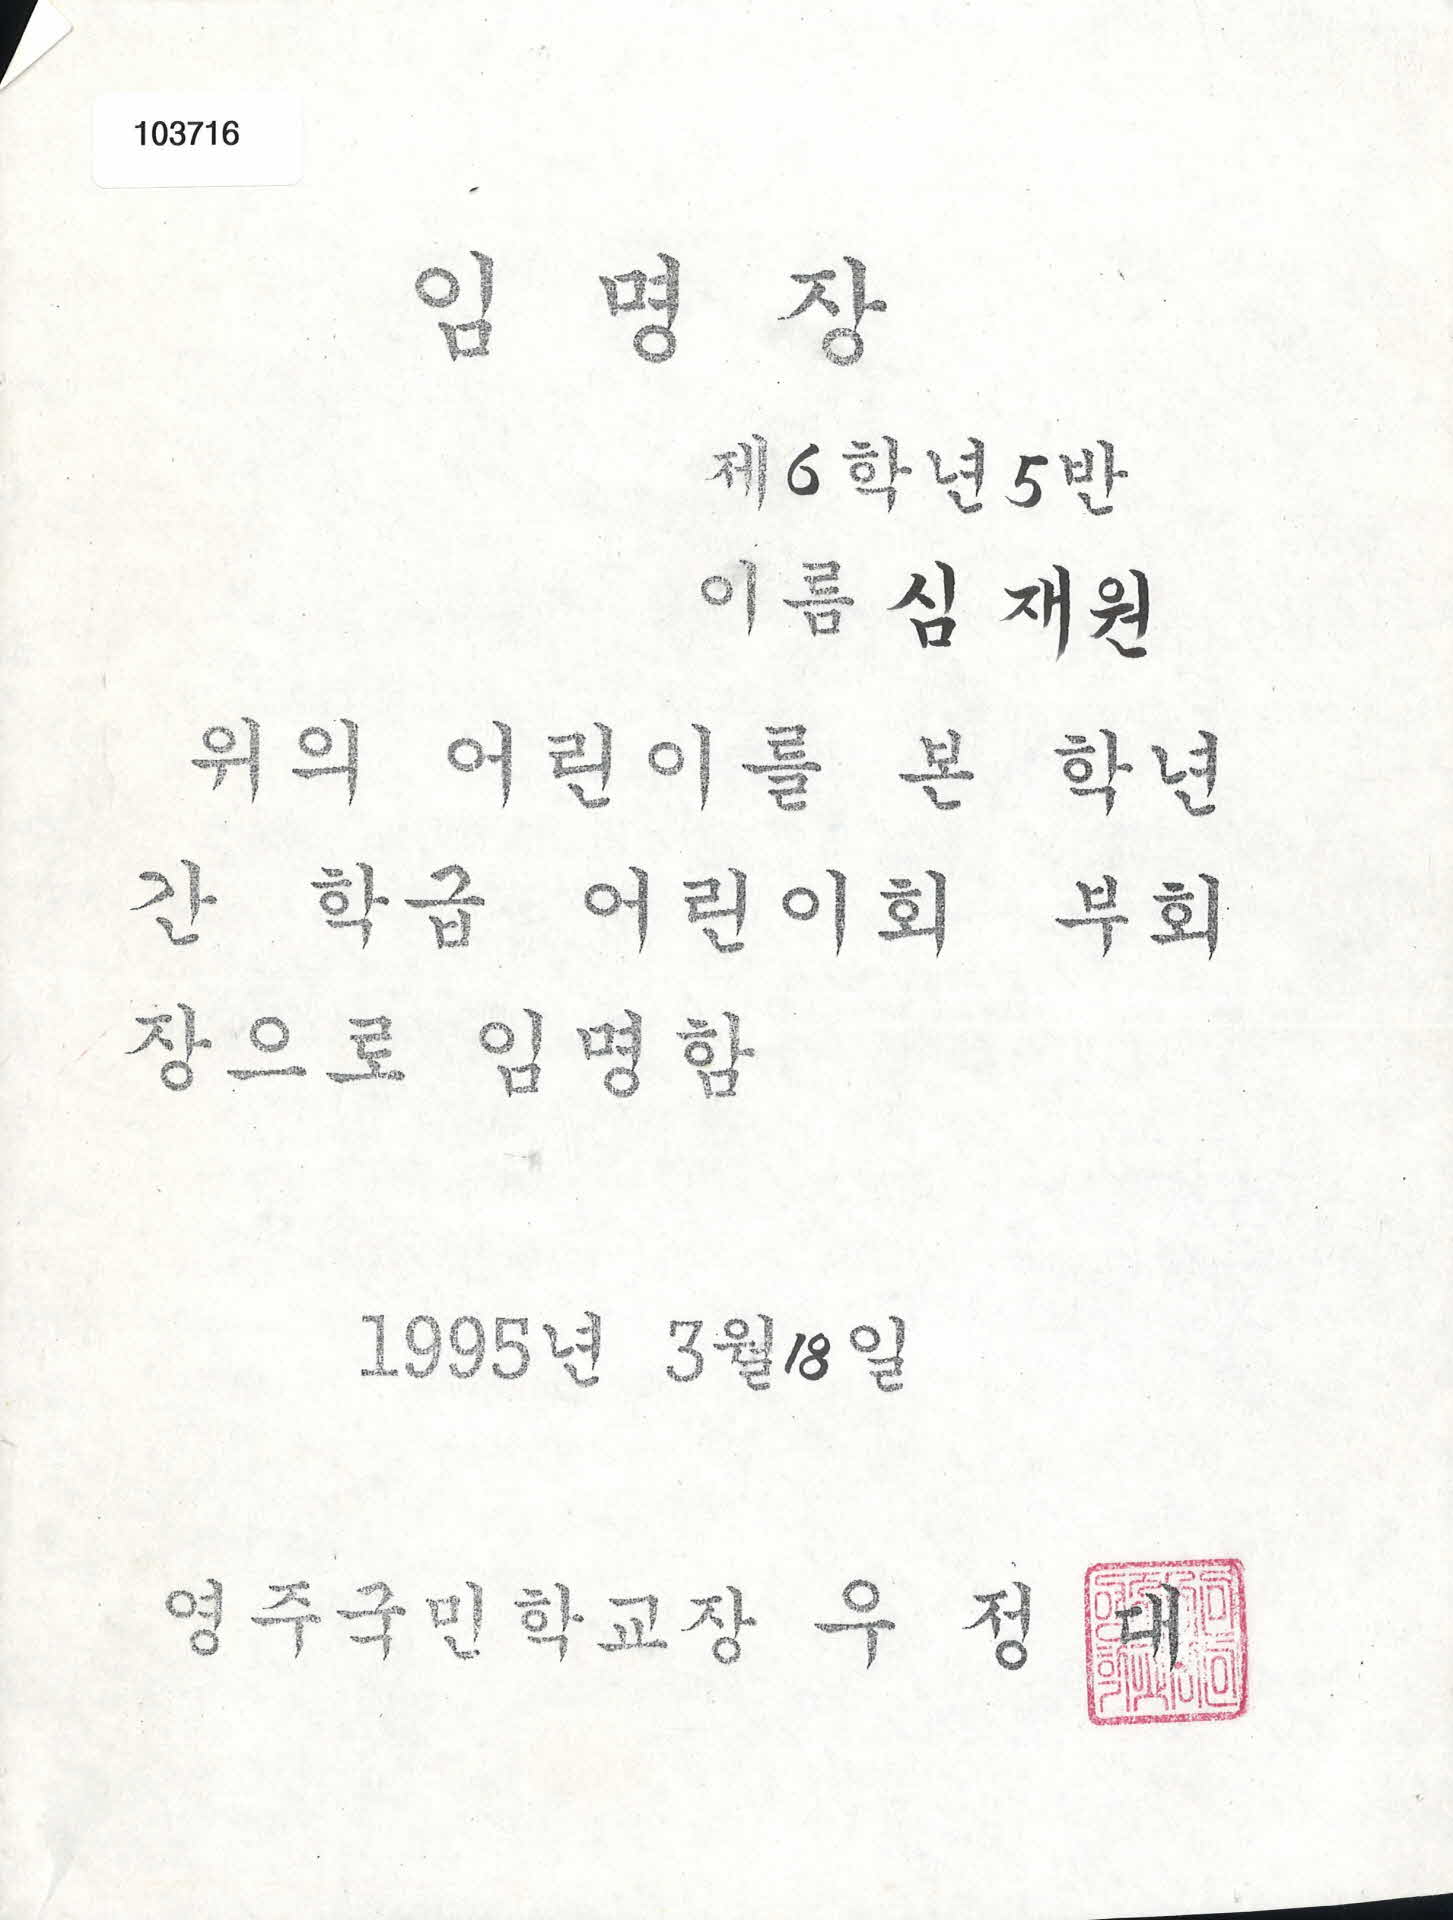 103716
임 명 장
제6학년5반
이름 심 재원
위의 어린이를 본 학년
간 학급 어린이회 부회
장으로 임명함
1995년 3월18일
영주국민학교장 우 정 대